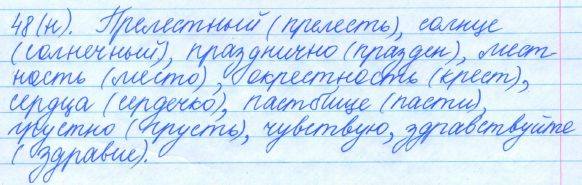 48(н). Прелестный (прелесть), солнце
(солнечный), празднично (празден), мест-
ность (место), окрестность (крест),
сердца (сердечко), пастбище (пасти),
грустно (грусть), чувствую, здравствуйте
(здравие).